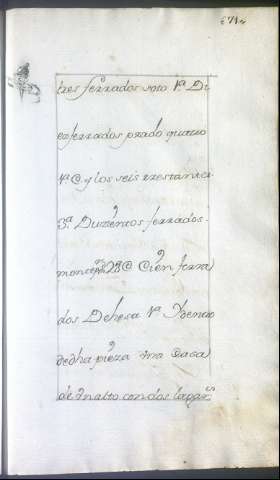 671
tres ferrados soto 1ª Di
ezferrados prado quatro
1ª @ y los seis rrestantes
3ª Duzientos ferrados
monte 2ª @ Çien ferra
dos Dehesa 1ª Ydentro
dedha pieza una Casa
de Unalto con dos lagars